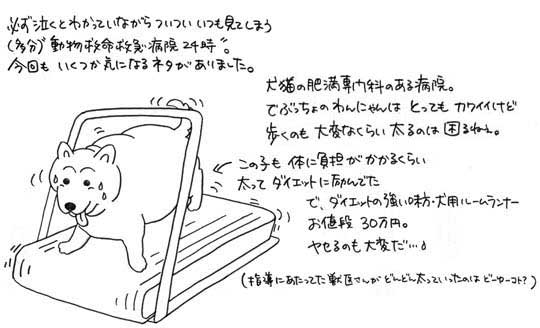 必ず泣くとわかっていながらついつい いつも見てしまう
(多分)"動物救命救急病院24時"。
今回も いくつか気になるネタがありました。
犬猫の肥満専門内科のある病院。
でぶっちょのわんにゃんは とっても カワイイけど
歩くのも 大変なくらい 太るのは 困るねぇ。
この子も 体に負担がかかるくらい
太って ダイエットに励んでた
で、ダイエットの強い味方・犬用ルームランナー
お値段 30万円。
ヤセるのも大変だ…♪
(指導にあたってた獣医さんが どんどん太っていったのは どーゆーコト?)